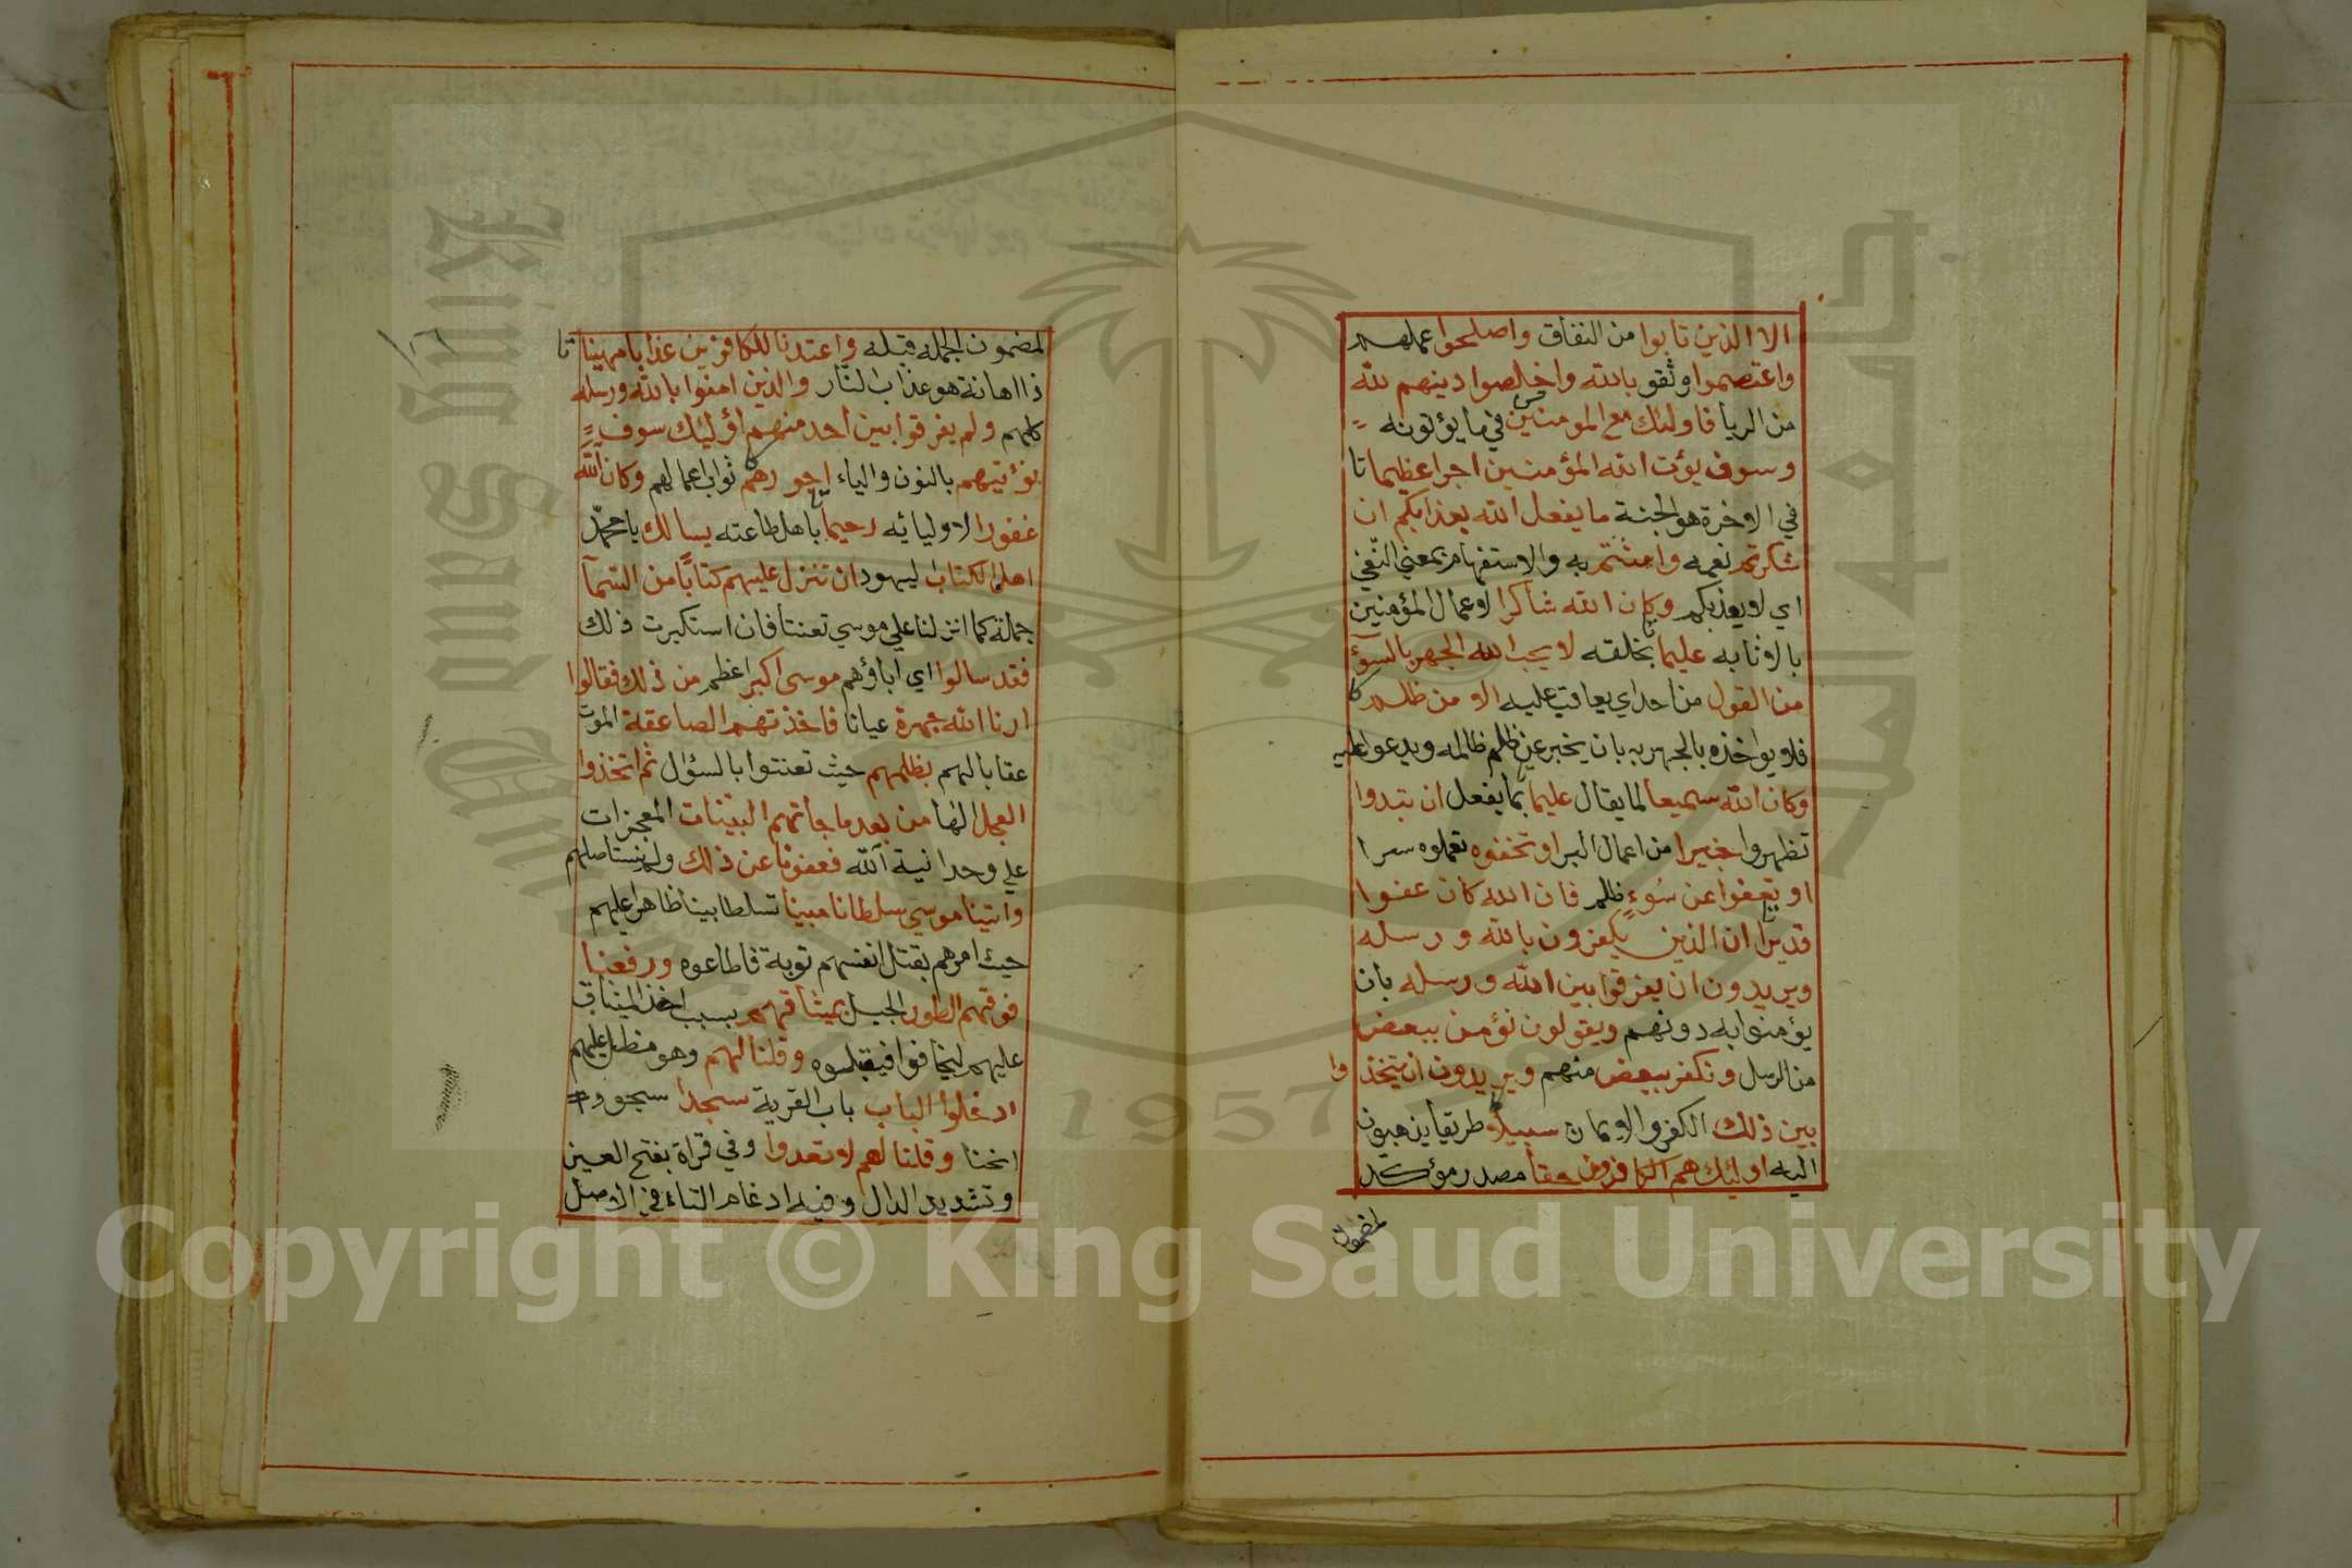 الا الذين تابوا من النفاق واصلحوا عملهم
واعتصموا وثقو بالله واخلصوا دينهم لله
من الريا فاولئك مع المومنين في ما يؤتونه
وسوف يؤت الله المؤمنين اجرا عظيما تا
في الاخرة هو الجنة ما يفعل الله بعذابكم ان
شكرتم نعمه وامنتم به والاستفهام بمعني النفي
اي لا يعذبكم وكان الله شاكرا لاعمال المؤمنين
بالاثابه عليما بخلقه لا يحب الله الجهر بالسوٓء
من القول من احد اي يعاقب عليه الا من ظلم
فلا يواخذه بالجهر به بان يخبر عن ظلم ظالمه ويدعوا عليه
وكان الله سميعا لما يقال عليما بما يفعل ان تبدوا
تظهروا خيرا من اعمال البر او تخفوه تعملوه سرا
او تعفوا عن سوء ظلم فان الله كان عفوا
قديرا ان الذين يكفرون بالله ورسله
ويريدون ان يفرقوا بين الله ورسله بان
يؤمنوا به دونهم ويقولون نؤمن ببعض
من الرسل ونكفر ببعض منهم ويريدون ان يتخذ وا
بين ذلك الكفر والايمان سبيلا طريقا يذهبون
اليه اوليك هم الكافرون حقا مصدر مؤكد
لمضمون
لمضمون الجمله قبله واعتدنا للكافرين عذابا مهينا تا
ذا اهانة هو عذاب النار والذين امنوا بالله ورسله
كلهم ولم يفرقوا بين احد منهم اؤليك سوف
نؤتيهم بالنون والياء اجورهم ثواب اعمالهم وكان الله
غفورا لاوليائه رحيما باهل طاعته يسالك يا محمد
اهل الكتاب ليهود ان تنزل عليهم كتابا من السمآ
جملة كما انزلنا علي موسي تعنتا فان استكبرت ذلك
فقد سالوا اي اباؤهم موسى اكبر اعظم من ذلك فقالوا
ارنا الله جهرة عيانا فاخذتهم الصاعقة الموت
عقابا لهم بظلمهم حيث تعنتوا بالسؤال ثم اتخذوا
العجل الها من بعد ما جاتهم البينات المعجزات
علي وحدانية الله فعفونا عن ذلك ولم نستاصلهم
واتينا موسي سلطانا مبينا تسلطا بينا ظاهرا عليهم
حيث امرهم بقتل انفسهم توبة فاطاعوه ورفعنا
فوقهم الطور الجبل بميثاقهم بسبب اخذ الميثاق
عليهم ليخافوا فيقبلوه وقلنا لهم وهو مظل عليهم
ادخلوا الباب باب القرية سجدا سجود
انحنا وقلنا لهم لا تعدوا وفي قراة بفتح العين
وتشديد الدال وفيه ادغام التاء في الاصل
Copyright © King Saud University
1957